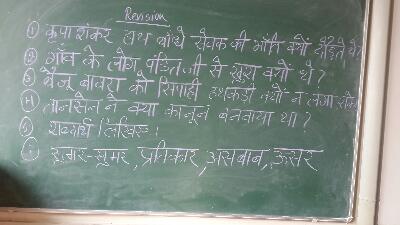 Revision
① कृपा शंकर हाथ बाँधे सेवक की भाँति क्यों दौड़ते थे?
② गाँव के लोग पंडित जी से खुश क्यों थे?
③ बैजू बावरा को सिपाही हथकड़ी क्यों न लगा सके
④ तानसेन ने क्या कानून बनवाया था?
⑤ शब्दार्थ लिखिए।
प्रतिकार, असबाब, ऊसर